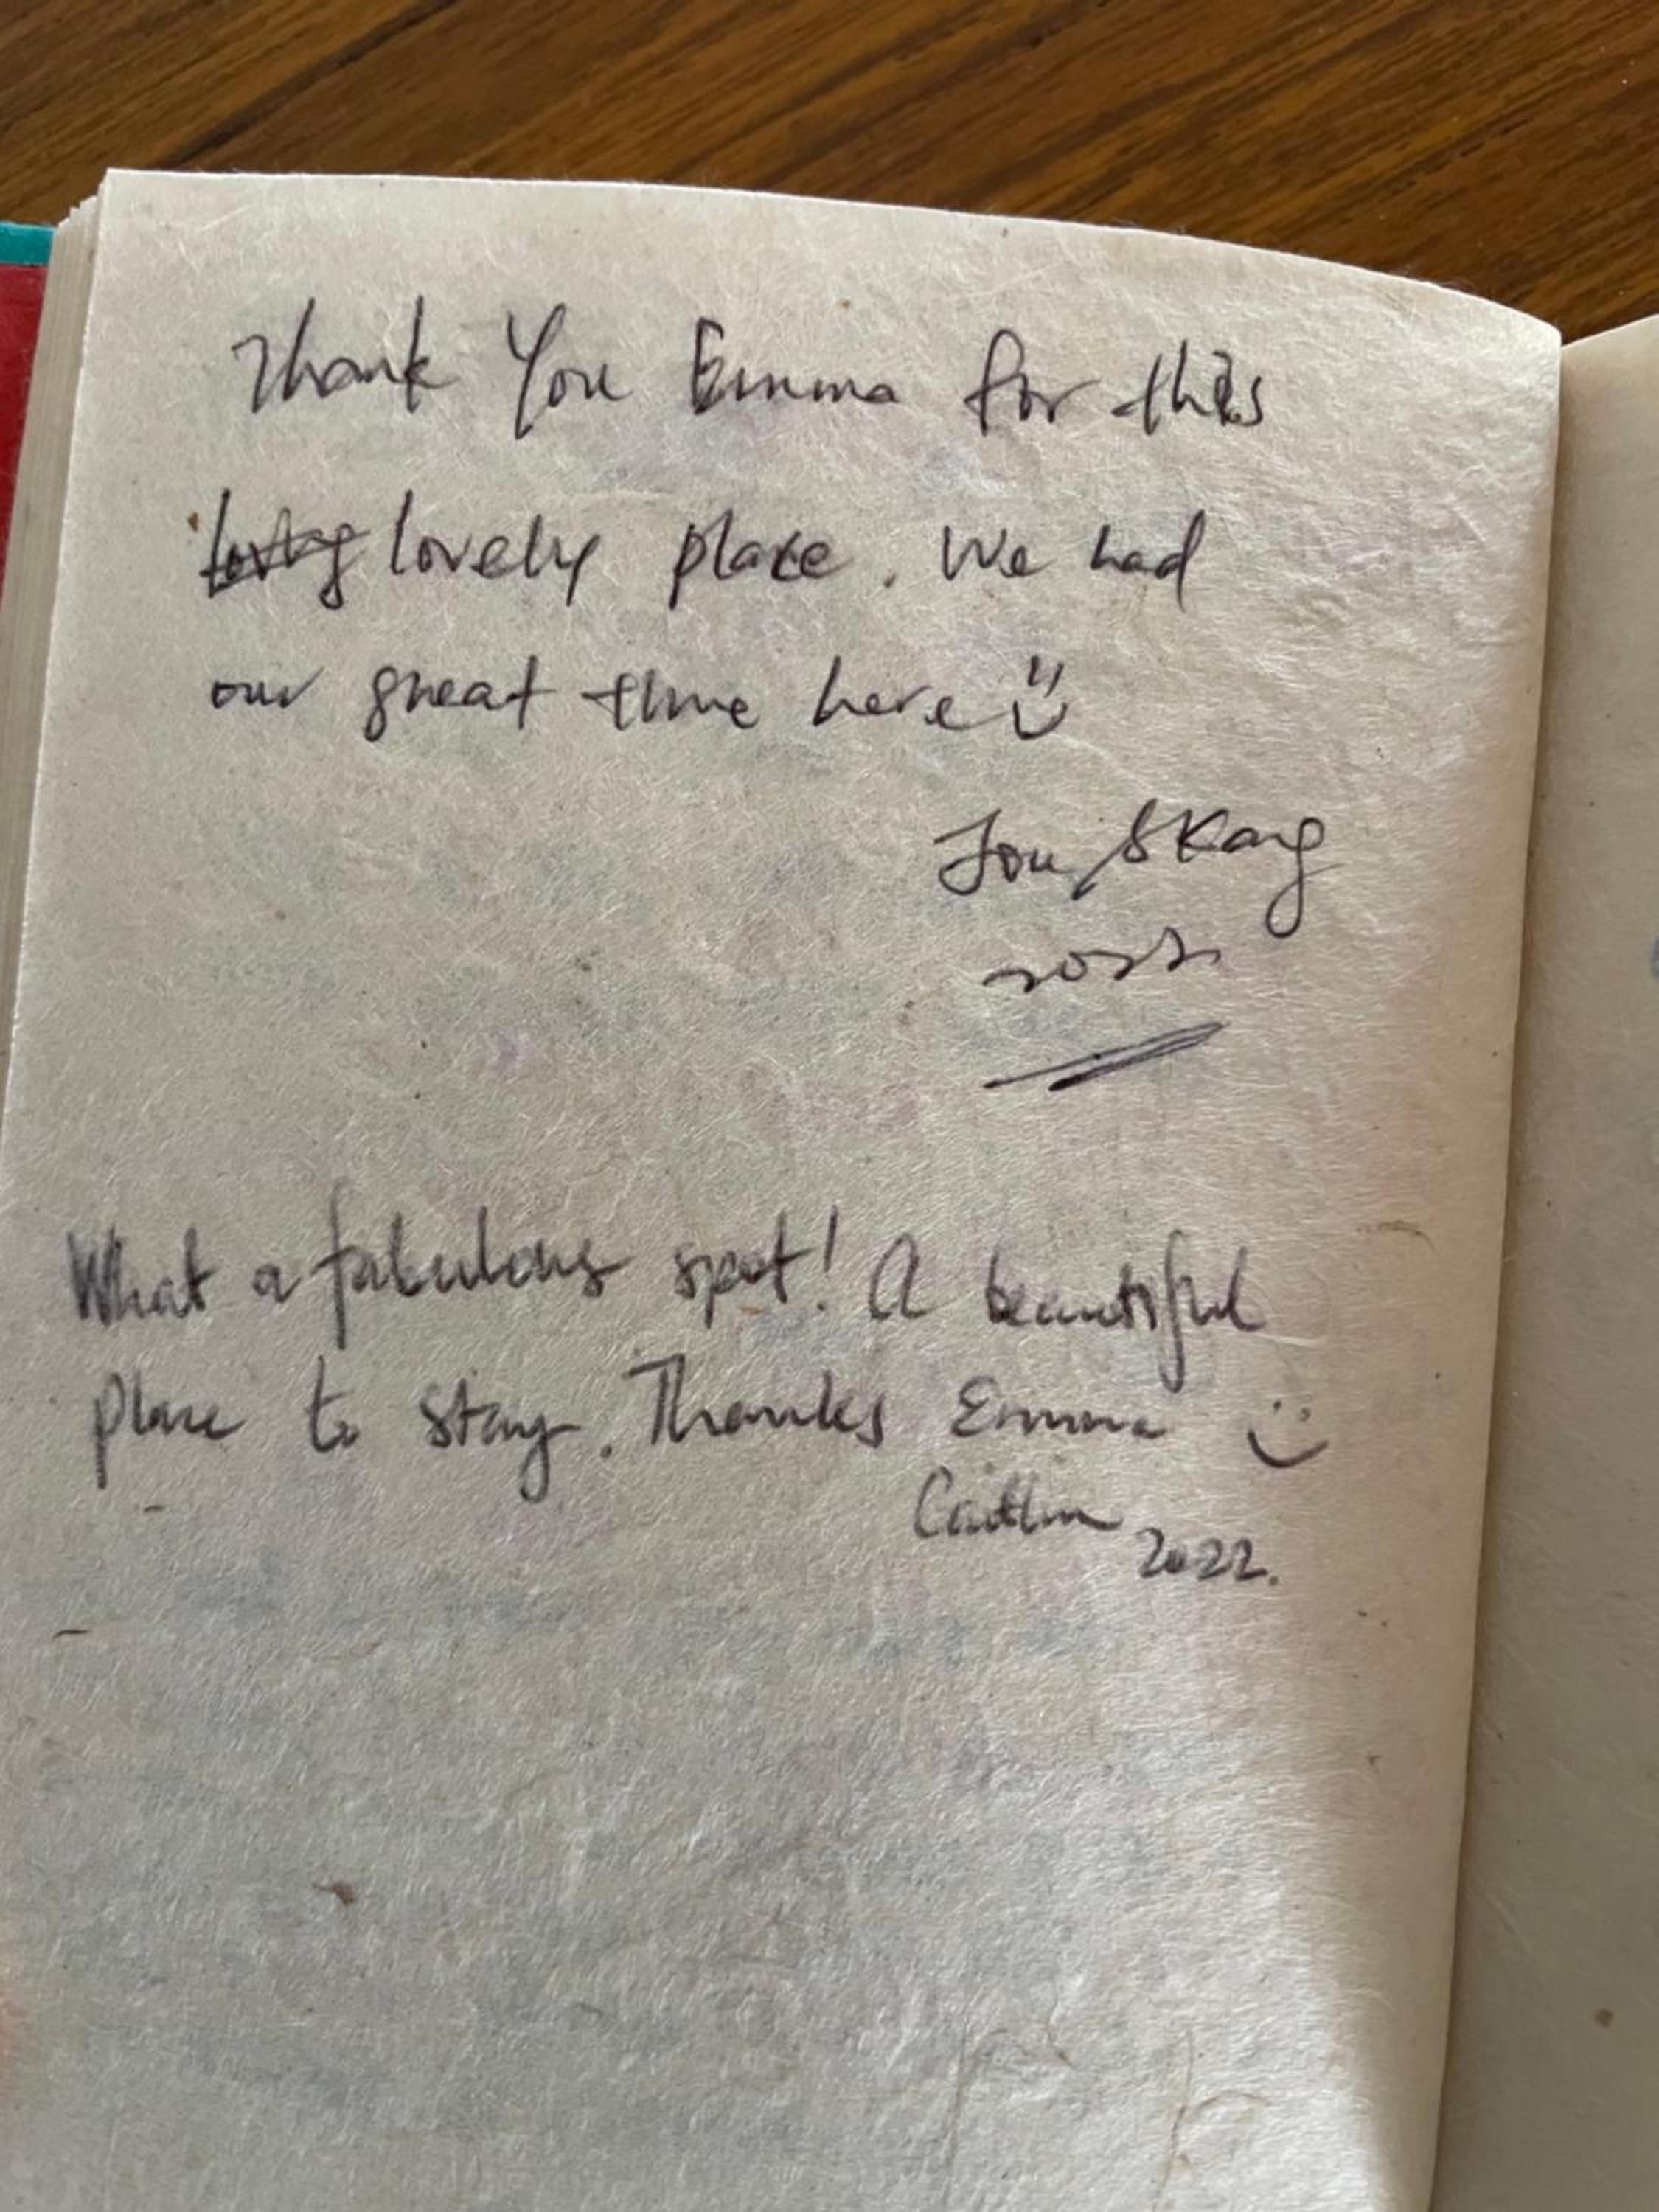 Thank You Emma for this
lovely place. We had
our great time here
& Kang
2022
What a fabulous spot! A beautiful
place to stay. Thanks Emma
Caitlin
2022.